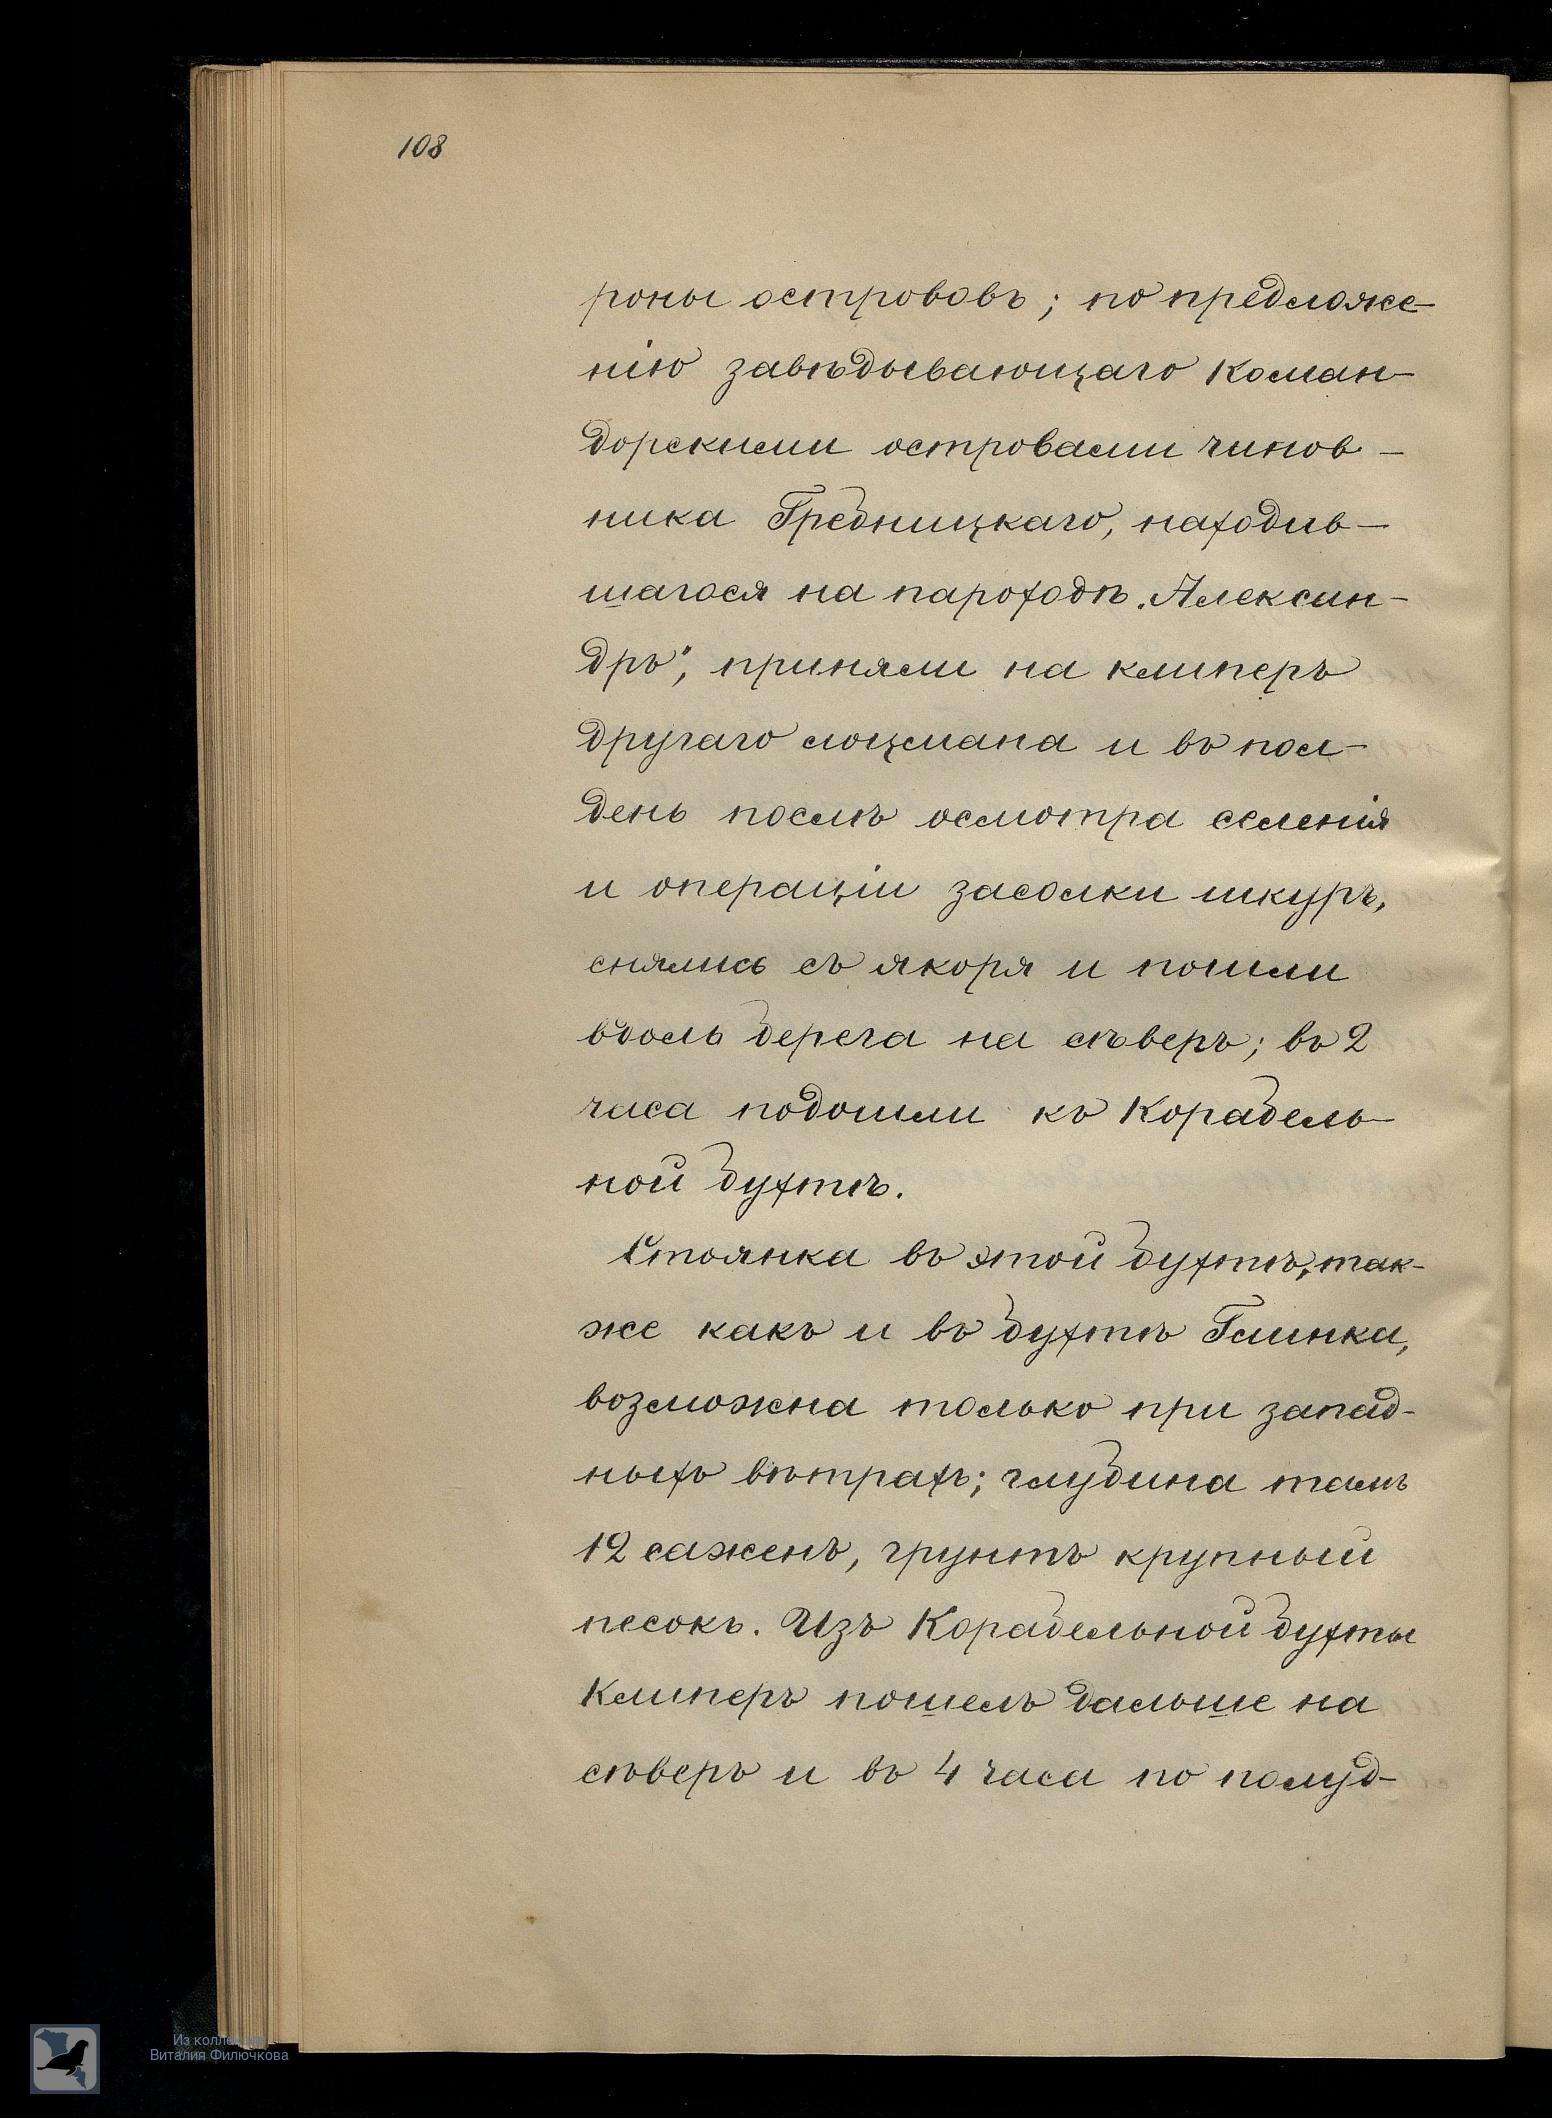 108
роны острововъ; по предложе-
нію завѣдывающаго Коман-
дорскими островами чинов-
ника Гребницкаго, находив-
шагося на пароходѣ „Алексан-
дръ“, приняли на клиперъ
другаго лоцмана и въ пол-
день послѣ осмотра селенія
и операціи засолки шкуръ,
снялись съ якоря и пошли
вдоль берега на сѣверъ; въ 2
часа подошли къ Корабель-
ной бухтѣ.
Стоянка въ этой бухтѣ, так-
же какъ и въ бухтѣ Глинка,
возможна только при запад-
ныхъ вѣтрахъ; глубина тамъ
12 саженъ, грунтъ крупный
песокъ. Изъ Корабельной бухты
клиперъ пошелъ дальше на
сѣверъ и въ 4 часа по полуд-
Из коллекции
Виталия Филючкова